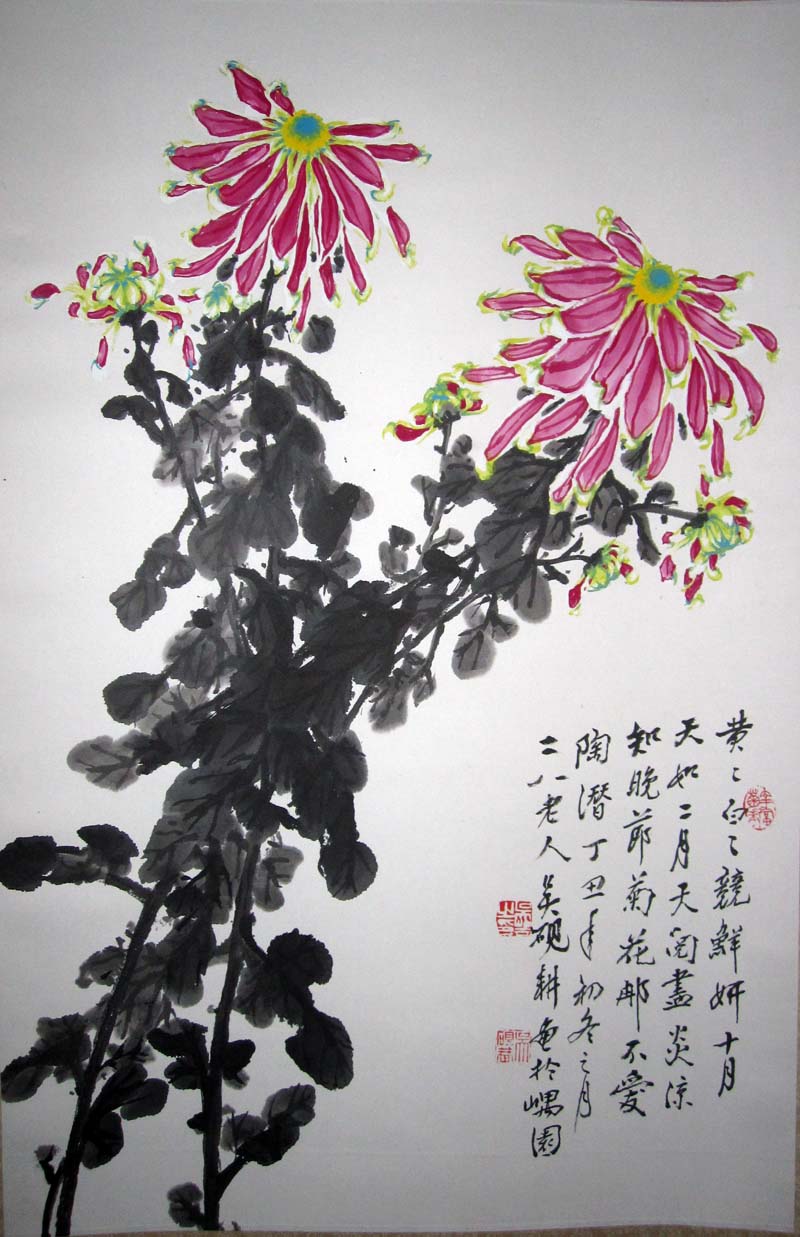 黄〻白〻競鮮妍十月
天如二月天閱盡炎涼
知晚節菊花那不愛
陶潛丁丑年初冬之月
二八老人吳硯耕画於嵎園